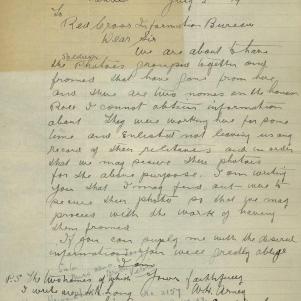 July 2
To
Red Cross Information Bureau
Dear Sir
We are about to have
the Soldiers Photos grouped together and
framed that have gone from here
and there are two names on the honor
Roll I cannot obtain information
about. They were working here for some
time and Enlisted not leaving any
record of their relatives and in order
that we may secure their photos
for the above purpose. I am writing
you that I may find out were to
secure their photo so that we may
proceed with the work of having
them framed
If you can supply me with the desired
information you would greatly oblige
I am
P.S. The two names of which Yours faithfully
I write are